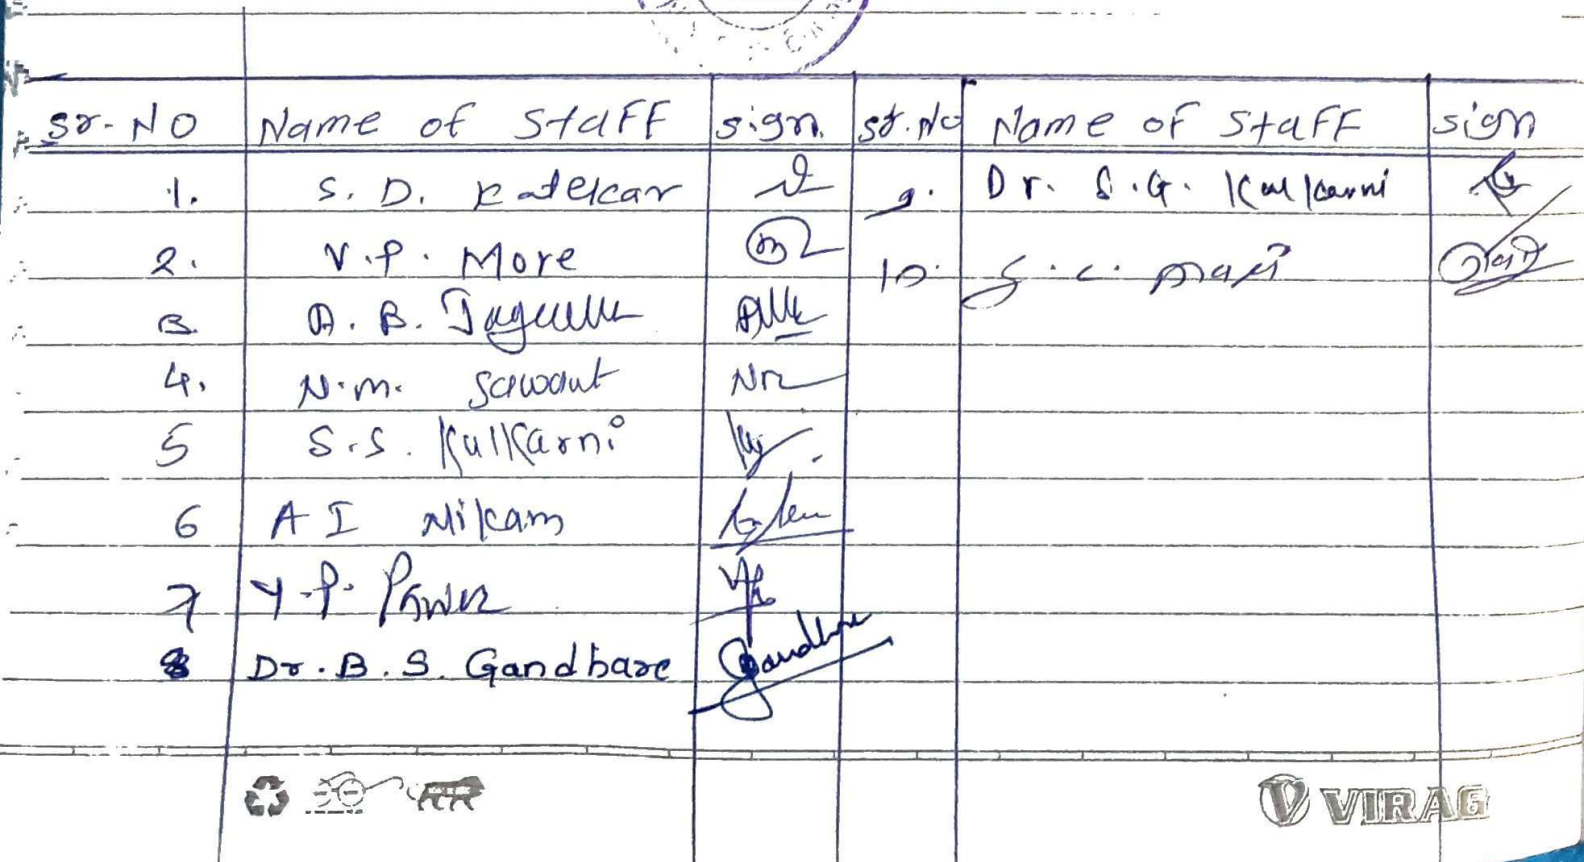 Sr. No Name of Staff sign. Sr. No Name of Staff sign
1. S. D. Katekar 9. Dr. S. G. Kulkarni
2. V. P. More 10. S. C.
3. A. B.
4. N. M. Sawant
5 S. S. Kulkarni
6 A I Nikam
7 Y. P. Pawar
8 Dr. B. S. Gandhare Gandhare
VIRAG